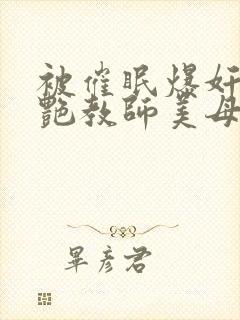 被催眠爆奸
艷教師美母
畢彦君